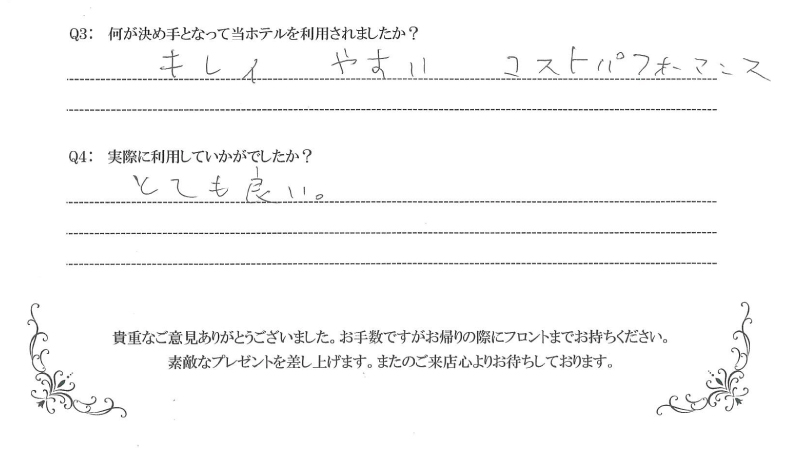 Q3： 何が決め手となって当ホテルを利用されましたか？
キレイ やすい コストパフォーマンス
Q4： 実際に利用していかがでしたか？
とても良い。
貴重なご意見ありがとうございました。お手数ですがお帰りの際にフロントまでお持ちください。
素敵なプレゼントを差し上げます。またのご来店心よりお待ちしております。